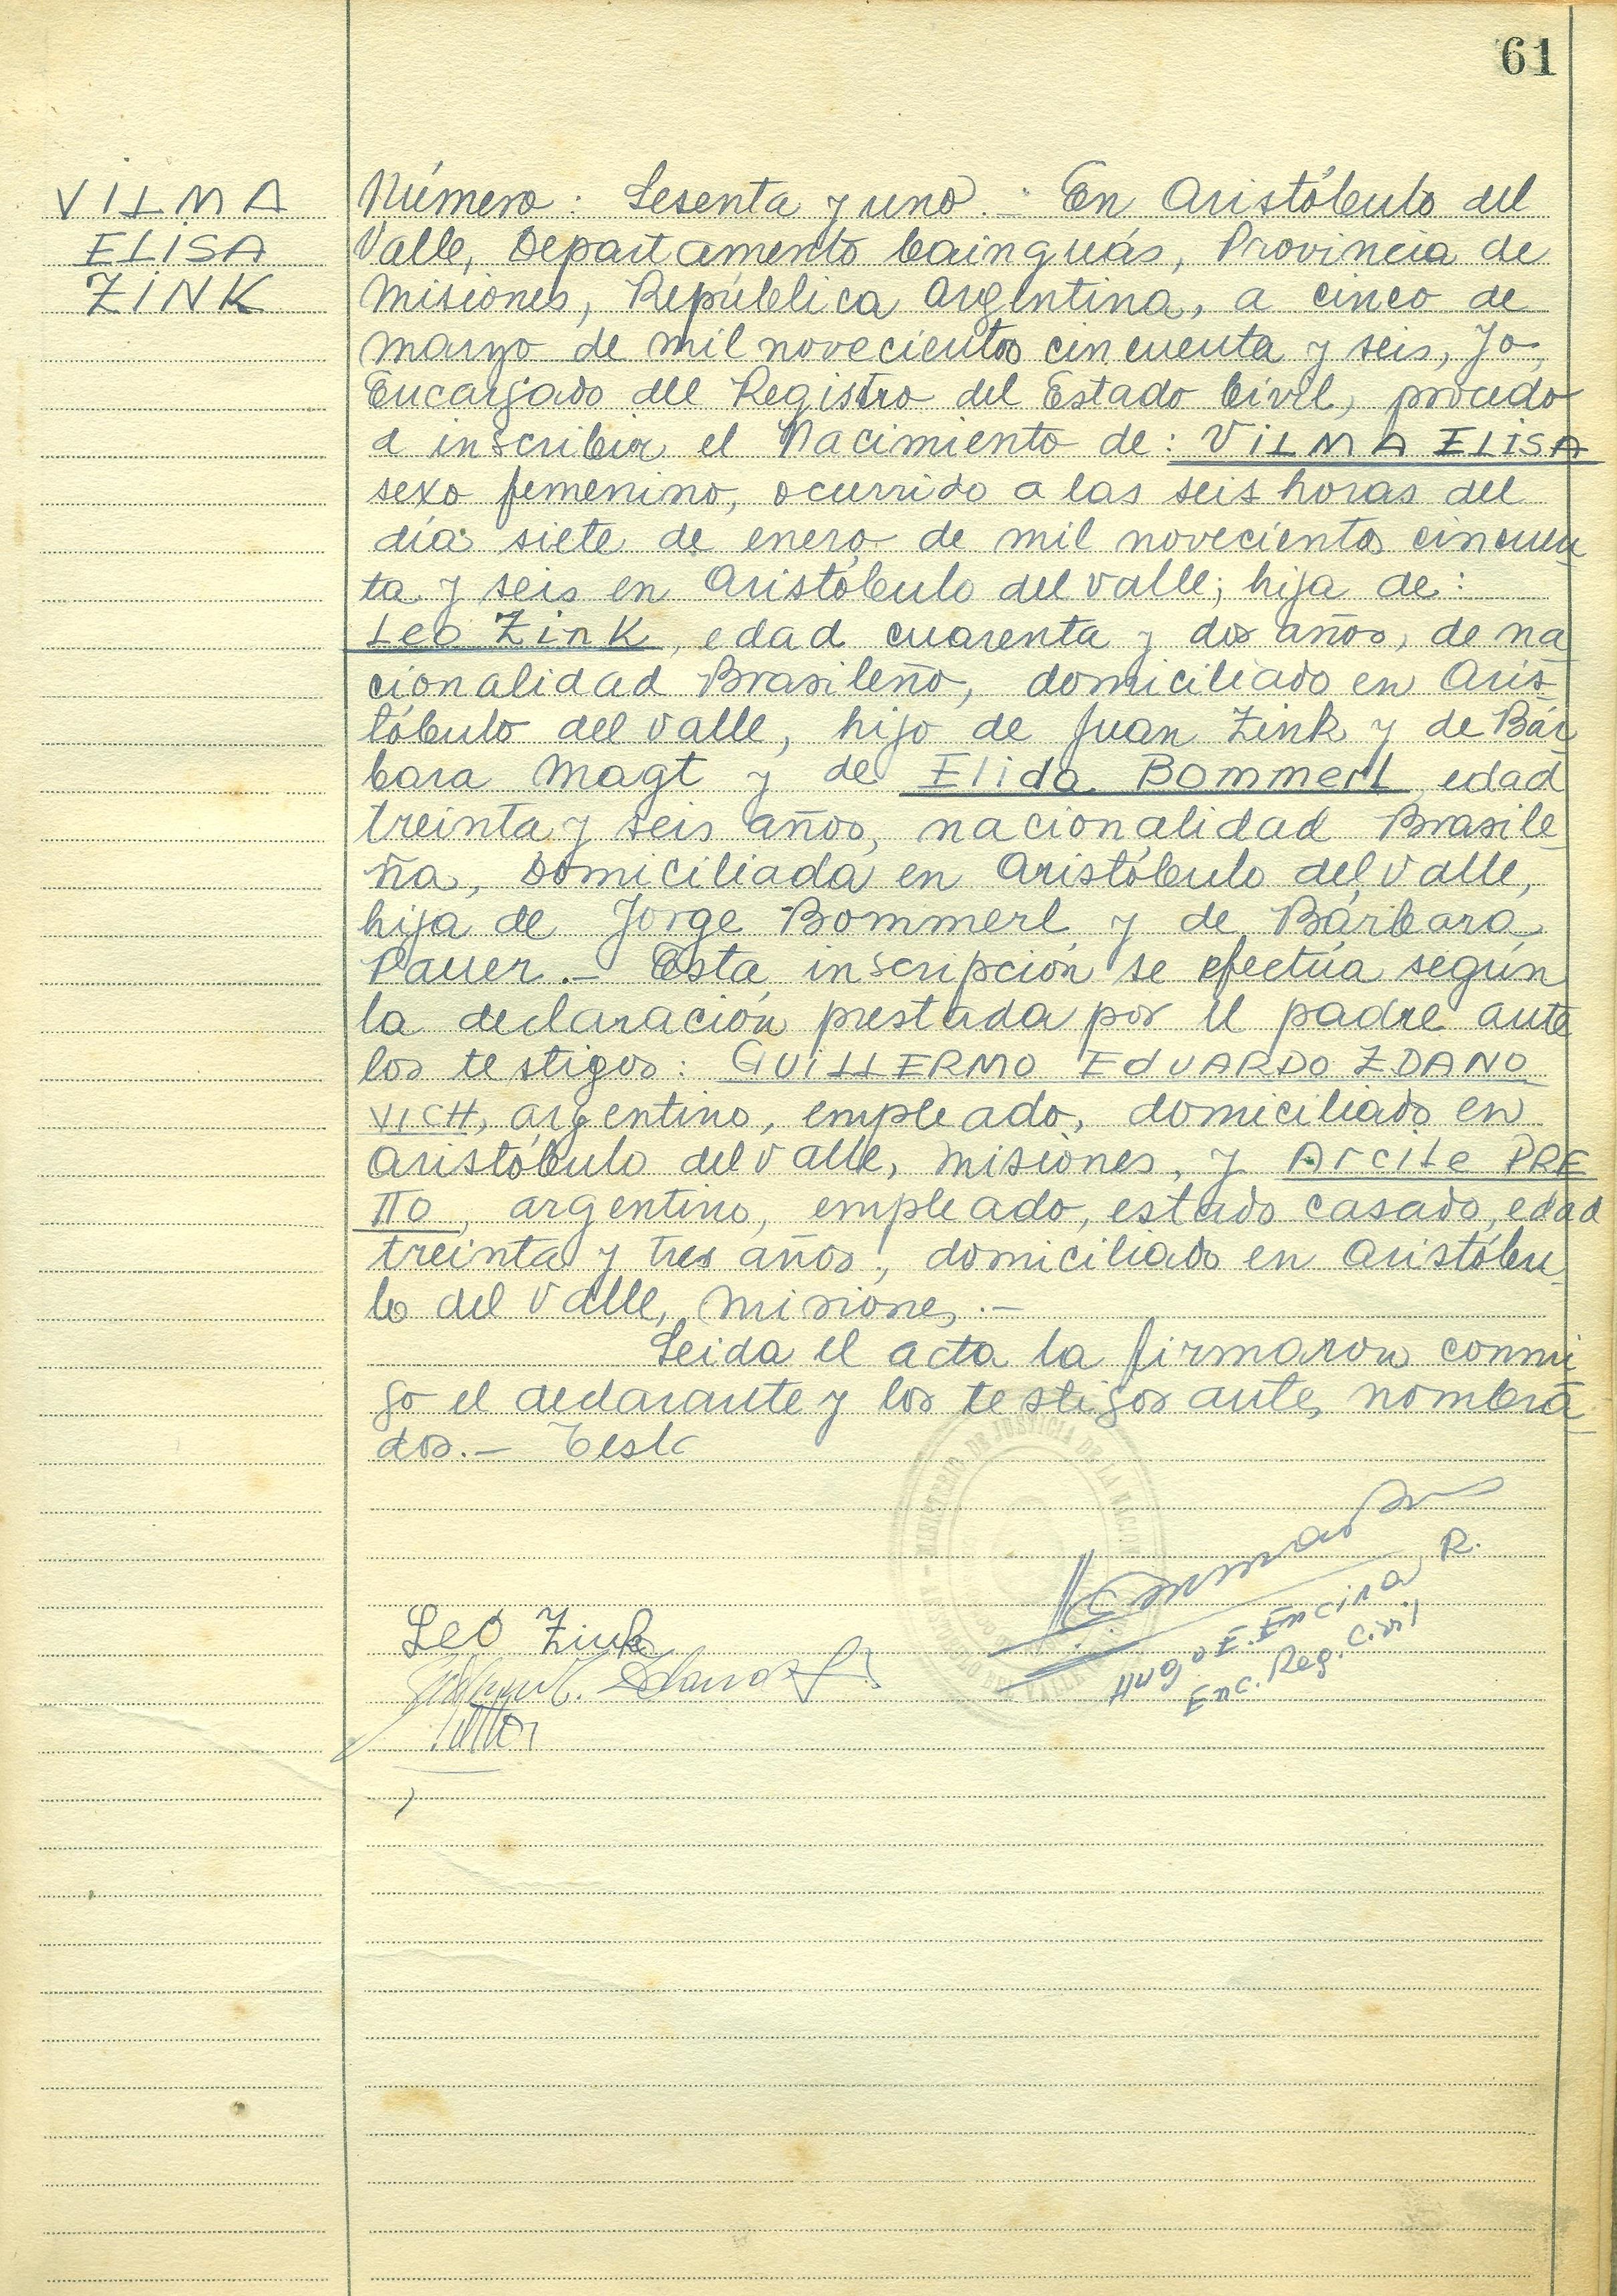 61
VILMA
ELISA
ZINK
Número: Sesenta y uno.- En Aristóbulo del
Valle, Departamento Cainguás, Provincia de
Misiones, República Argentina, a cinco de
marzo de mil novecientos cincuenta y seis, Yo,
Encargado del Registro del Estado Civil, procedo
a inscribir el Nacimiento de: VILMA ELISA
sexo femenino, ocurrido a las seis horas del
día siete de enero de mil novecientos cincuen
ta y seis en Aristóbulo del Valle; hija de:
Leo Zink, edad cuarenta y dos años, de na
cionalidad Brasileño, domiciliado en Aris
tóbulo del Valle, hijo de Juan Zink y de Bár
bara Magt y de Elida Bommerl, edad
treinta y seis años, nacionalidad Brasile
ña, Domiciliada en Aristóbulo del Valle,
hija de Jorge Bommerl y de Bárbara
Pauer.- Esta inscripción se efectúa según
la declaración prestada por el padre ante
los testigos: GUILLERMO EdUARDO ZDANO
VICH, argentino, empleado, domiciliado en
Aristóbulo del Valle, Misiones, y Arcile PRE
TTO, argentino, empleado, estado casado, edad
treinta y tres años, domiciliado en Aristóbu
lo del Valle, Misiones.-
Leida el acta la firmaron conmi
go el declarante y los testigos antes nombra
dos.-
MINISTERIO DE JUSTICIA DE LA NACION
Leo Zink
Hugo E. Encina R.
Enc. Reg. Civil